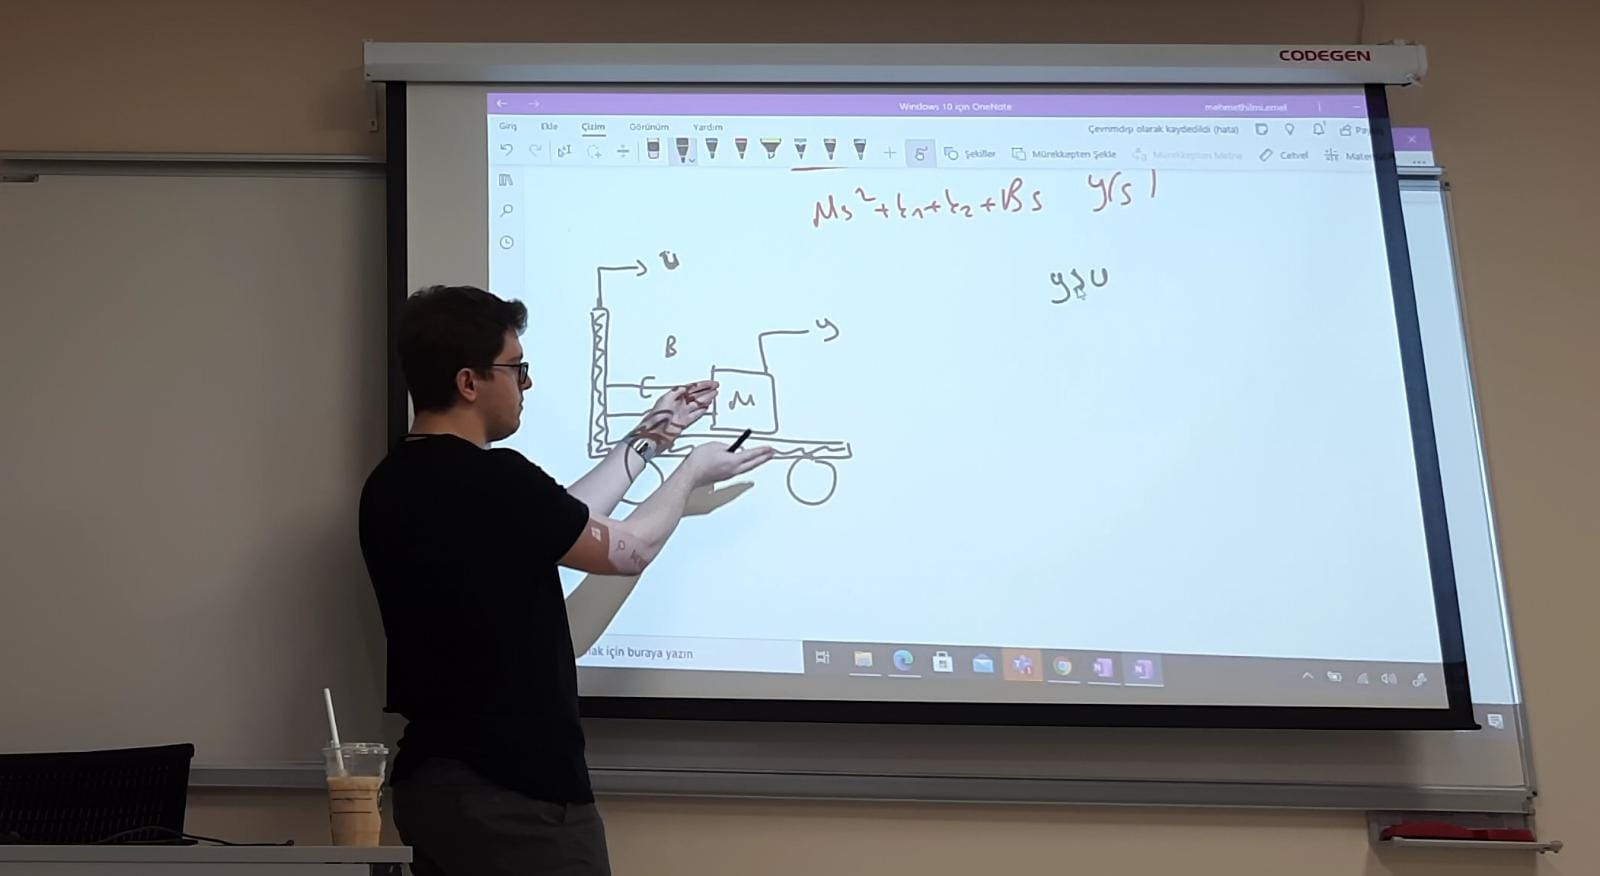 CODEGEN
Windows 10 için OneNote
mehmethilmi.emel
Giriş Ekle Çizim Görünüm Yardım
Çevrimdışı olarak kaydedildi (hata)
Şekiller Mürekkepten Şekle Mürekkepten Metne Cetvel
Ms²+k₁+k₂+Bs y(s)
u
y>u
B
y
M
için buraya yazın